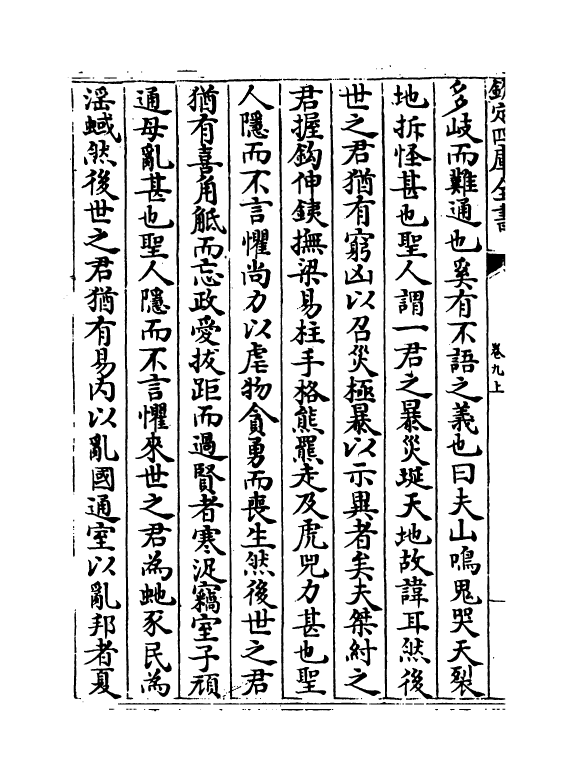 欽定四庫全書
卷九上
多岐而難通也奚有不語之義也曰夫山鳴鬼哭天裂
地拆怪甚也聖人謂一君之暴災埏天地故諱耳然後
世之君猶有窮凶以召災極暴以示異者矣夫桀紂之
君握鈎伸鐵撫梁易柱手格熊羆走及虎兕力甚也聖
人隱而不言懼尚力以虐物貪勇而喪生然後世之君
猶有喜角觝而忘政愛拔距而過賢者寒浞竊室子頑
通母亂甚也聖人隱而不言懼來世之君為虵豕民為
淫蜮然後世之君猶有易内以亂國通室以亂邦者夏